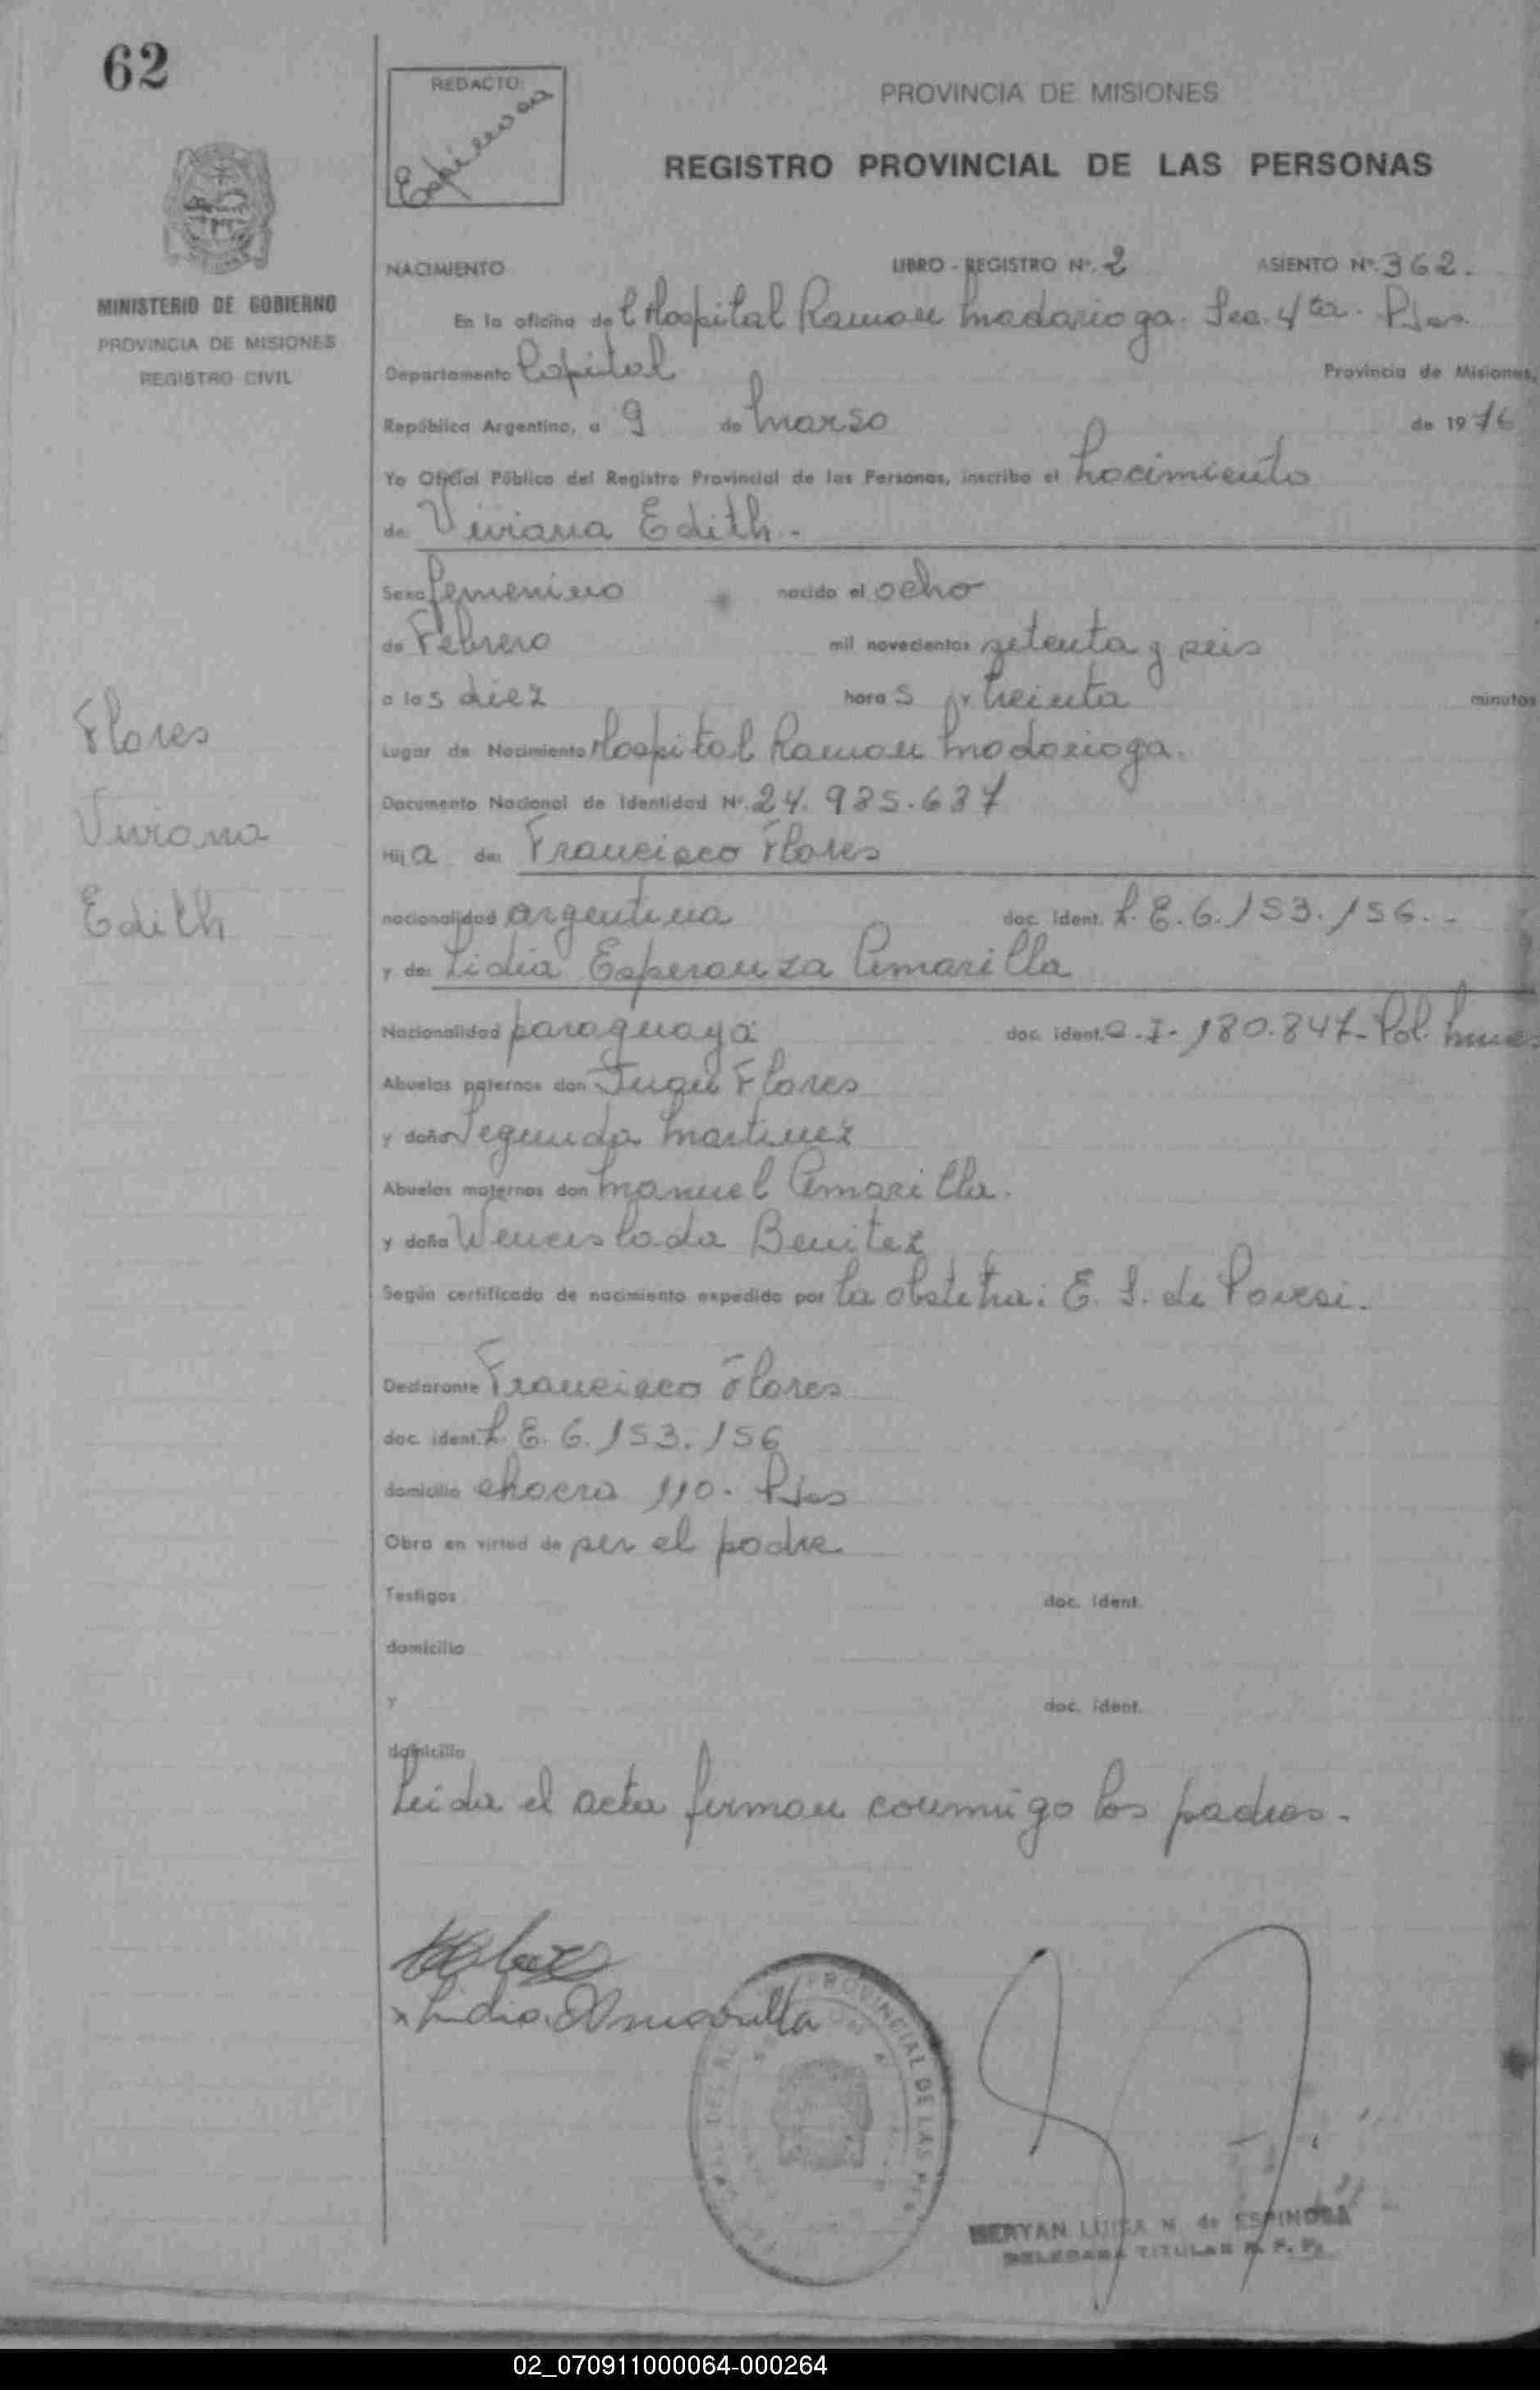 62
REDACTO:
Espinosa
PROVINCIA DE MISIONES
REGISTRO PROVINCIAL DE LAS PERSONAS
MINISTERIO DE GOBIERNO
PROVINCIA DE MISIONES
REGISTRO CIVIL
NACIMIENTO LIBRO - REGISTRO Nº. 2 ASIENTO Nº. 362.
En la oficina del Hospital Ramon Madariaga. Sec. 4ta. Pdas
Departamento Capital Provincia de Misiones,
República Argentina, a 9 de Marzo de 1976
Yo Oficial Público del Registro Provincial de las Personas, inscribo el Nacimiento
de: Viviana Edith.-
Sexo femenino nacido el ocho
de Febrero mil novecientos setenta y seis
a las diez horas y treinta minutos
Flores
Viviana
Edith
Lugar de Nacimiento Hospital Ramon Madariaga.
Documento Nacional de Identidad Nº. 24.985.637
Hija de: Francisco Flores
nacionalidad argentina doc. ident. L.E. 6.153.156.-
y de: Lidia Esperanza Amarilla
Nacionalidad paraguaya doc. ident. C.I. 180.847- Pol. Mnes
Abuelos paternos don Juan Flores
y doña Segunda Martinez
Abuelos maternos don Manuel Amarilla.
y doña Wenceslada Benitez
Según certificado de nacimiento expedido por la obstetra: E. S. de
Declarante Francisco Flores
doc. ident. L.E. 6.153.156
domicilio chacra 110. Pdas
Obra en virtud de ser el padre.
Testigos doc. ident.
domicilio
y doc. ident.
domicilio
Leida el acta firman conmigo los padres.-
x Lidia Amarilla
PROVINCIAL DE LAS PER
MERYAN LUISA N. de ESPINOSA
DELEGADA TITULAR R. P. P.
02_070911000064-000264